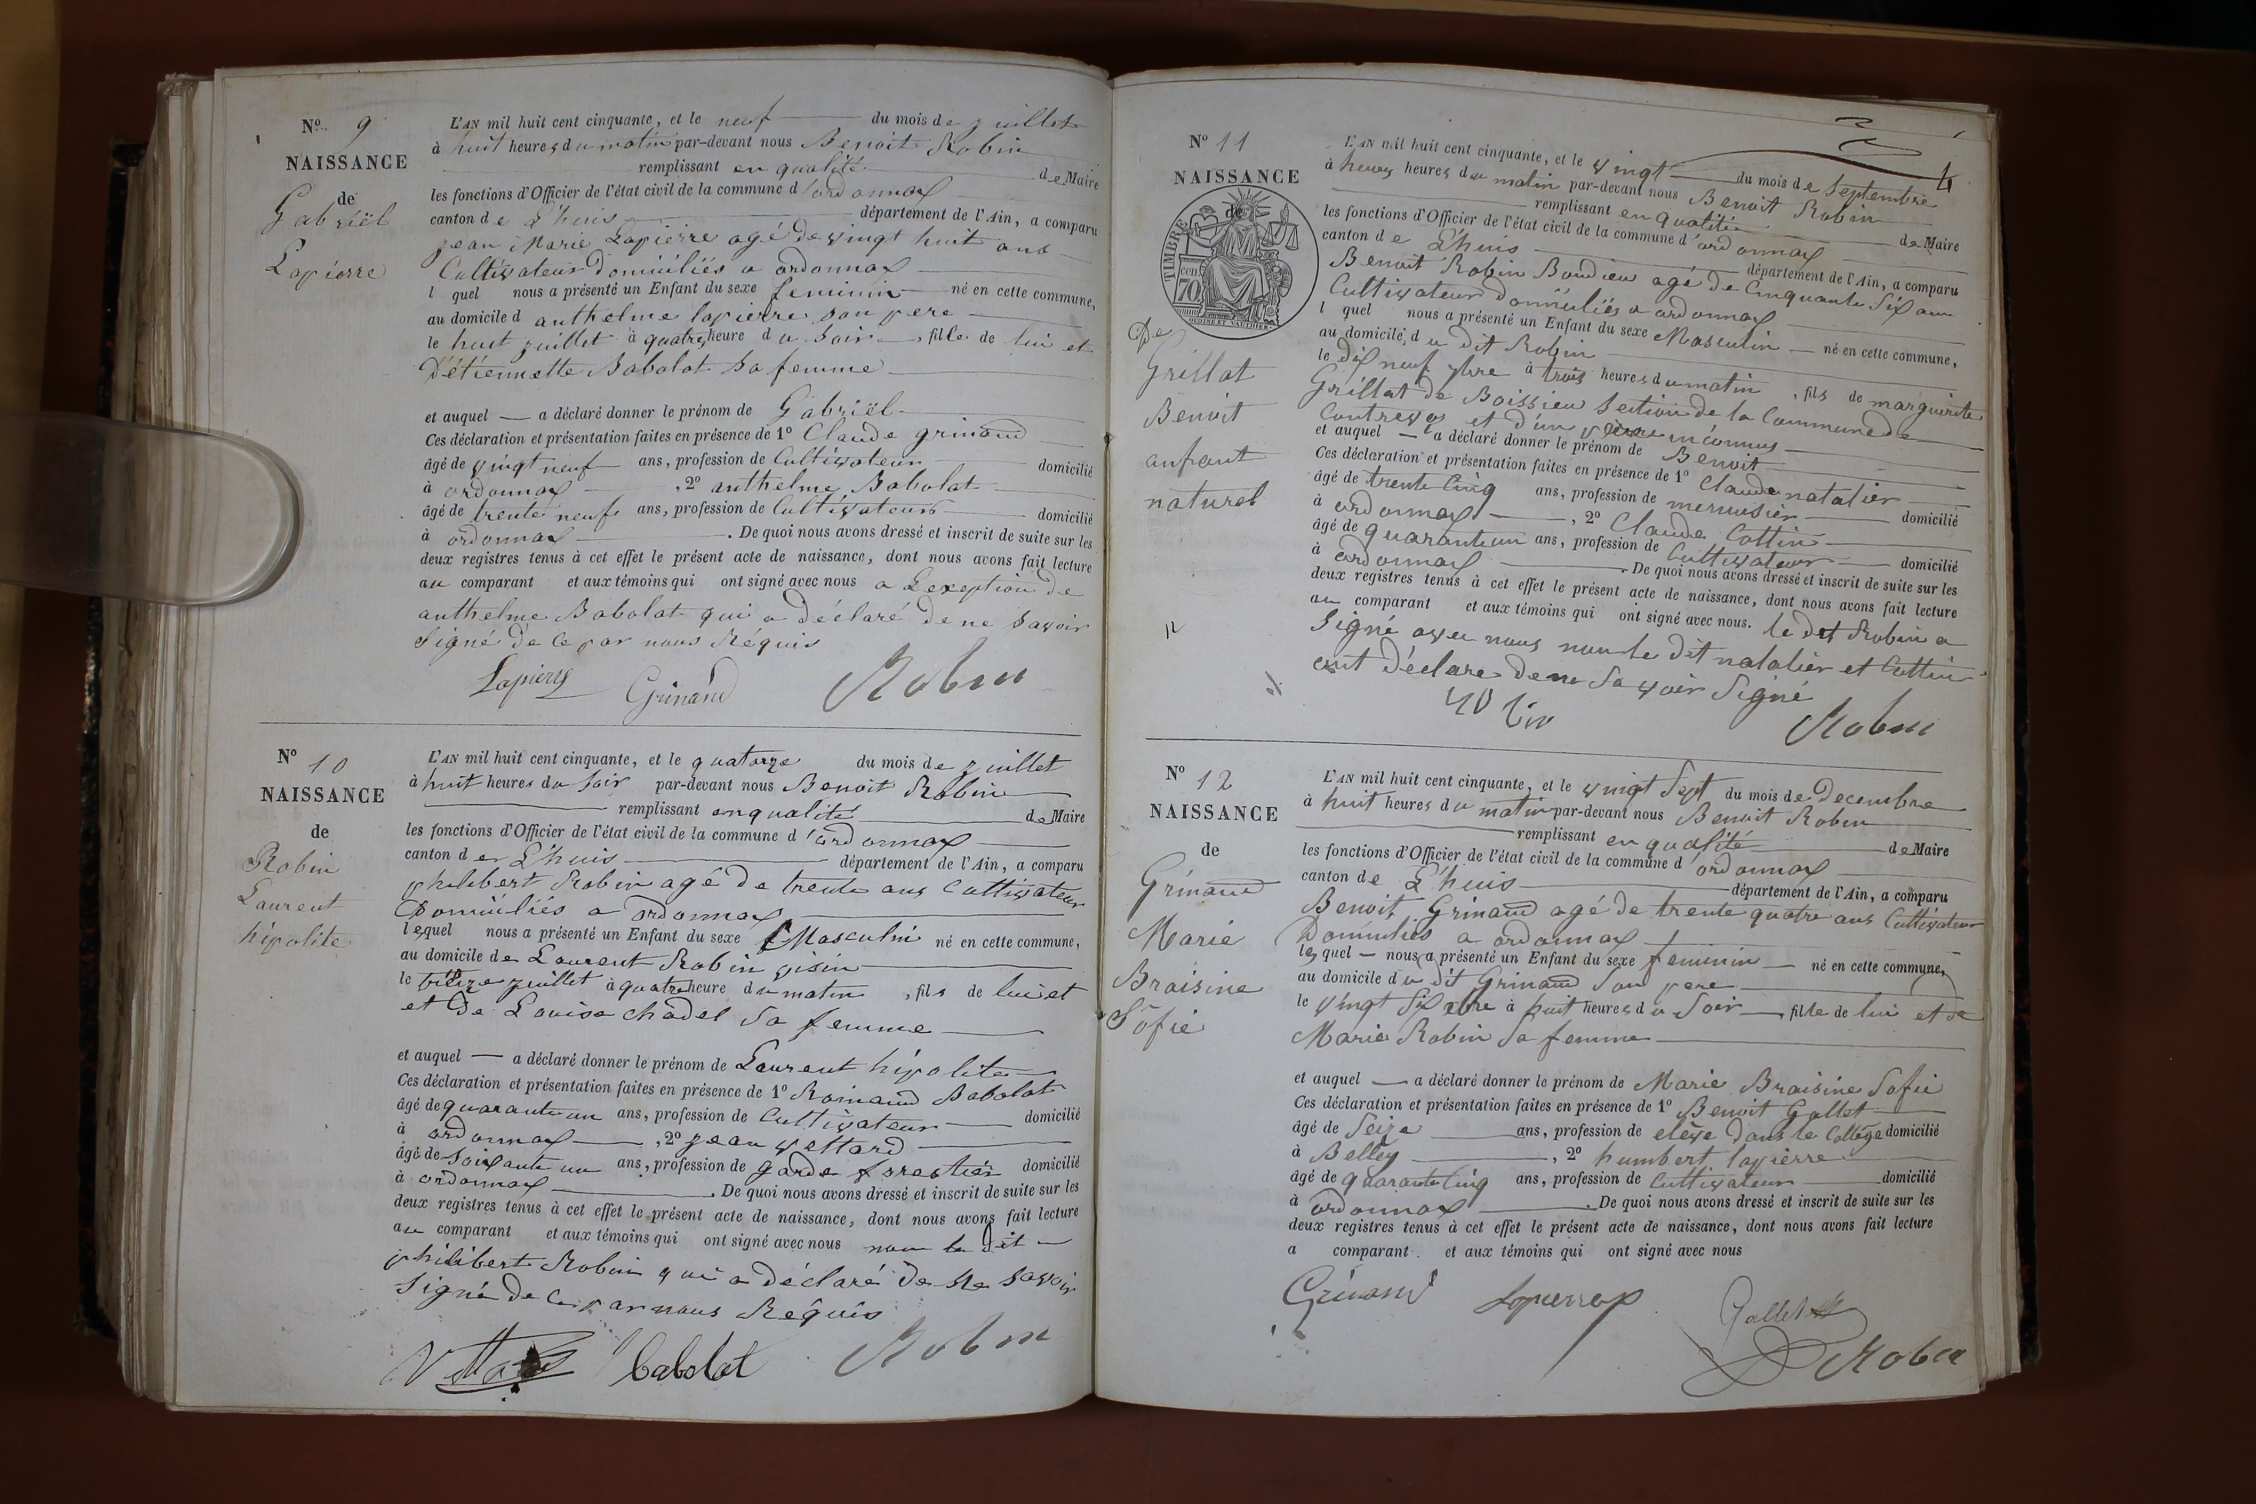 No 9
NAISSANCE
de
Gabriël
Lapierre
L'AN mil huit cent cinquante, et le neuf du mois de juillet
à huit heures du matin par-devant nous Benoit Robin
remplissant en qualité de Maire
les fonctions d'Officier de l'état civil de la commune d'ordonnax
canton de L'huis département de l'Ain, a comparu
jean Marie Lapierre agé de vingt huit ans
Cultivateur domiciliés a ordonnax
l quel nous a présenté un Enfant du sexe feminin né en cette commune,
au domicile d anthelme lapierre son pere
le huit juillet à quatre heure du Soir, fille de lui et
D'étiennette Babolat Sa femme
et auquel a déclaré donner le prénom de Gabriël
Ces déclaration et présentation faites en présence de 1o Claude grinand
âgé de vingt neuf ans, profession de Cultivateur domicilié
à ordonnax, 2o anthelme Babolat
âgé de trente neuf ans, profession de Cultivateur domicilié
à ordonnax. De quoi nous avons dressé et inscrit de suite sur les
deux registres tenus à cet effet le présent acte de naissance, dont nous avons fait lecture
au comparant et aux témoins qui ont signé avec nous a L'exeption de
anthelme Babolat qui a déclaré de ne Savoir
Signé de ce par nous Réquis
Lapierre Grinand Robin
No 10
NAISSANCE
de
Robin
Laurent
hipolite
L'AN mil huit cent cinquante, et le quatorze du mois de juillet
à huit heures du Soir par-devant nous Benoit Robin
remplissant en qualité de Maire
les fonctions d'Officier de l'état civil de la commune d'ordonnax
canton de L'huis département de l'Ain, a comparu
philibert Robin agé de trente ans Cultivateur
Domiciliés a ordonnax
lequel nous a présenté un Enfant du sexe Masculin né en cette commune,
au domicile de Laurent Robin voisin
le treize juillet à quatre heure du matin, fils de lui et
et de Louise chadel Sa femme
et auquel a déclaré donner le prénom de Laurent hipolite
Ces déclaration et présentation faites en présence de 1o Romand Babolat
âgé de quarante un ans, profession de Cultivateur domicilié
à ordonnax, 2o jean vettard
âgé de Soixante un ans, profession de garde forestier domicilié
à ordonnax. De quoi nous avons dressé et inscrit de suite sur les
deux registres tenus à cet effet le présent acte de naissance, dont nous avons fait lecture
au comparant et aux témoins qui ont signé avec nous non le dit
philibert Robin qui a déclaré de ne Savoir
Signé de ce par nous Requis
Vettard Babolat Robin
No 11
NAISSANCE
de
TIMBRE
cen 70
De
Grillat
Benoit
enfant
naturel
L'AN mil huit cent cinquante, et le vingt du mois de Septembre
à heures du matin par-devant nous Benoit Robin
remplissant en qualité de Maire
les fonctions d'Officier de l'état civil de la commune d'ordonnax
canton de L'huis département de l'Ain, a comparu
Benoit Robin Bondieu agé de Cinquante Six ans
Cultivateur domiciliés a ordonnax
l quel nous a présenté un Enfant du sexe Masculin né en cette commune,
au domicile du dit Robin
le dix neuf 7bre à trois heures du matin, fils de marguerite
Grillat de Boissieu Section de la Commune de
Contrevoz et d'un pere inconnus
et auquel a déclaré donner le prénom de Benoit
Ces déclaration et présentation faites en présence de 1o Claude natalier
âgé de trente Cinq ans, profession de menuisier domicilié
à ordonnax, 2o Claude Cottin
âgé de quarante un ans, profession de Cultivateur domicilié
à ordonnax. De quoi nous avons dressé et inscrit de suite sur les
deux registres tenus à cet effet le présent acte de naissance, dont nous avons fait lecture
au comparant et aux témoins qui ont signé avec nous. le dit Robin a
Signé avec nous non le dit natalier et Cottin
ont déclare de ne Savoir Signé
Robin
No 12
NAISSANCE
de
Grinand
Marie
Braisine
Sofie
L'AN mil huit cent cinquante, et le vingt Sept du mois de Decembre
à huit heures du matin par-devant nous Benoit Robin
remplissant en qualité de Maire
les fonctions d'Officier de l'état civil de la commune d'ordonnax
canton de L'huis département de l'Ain, a comparu
Benoit Grinand agé de trente quatre ans Cultivateur
Domiciliés a ordonnax
lequel nous a présenté un Enfant du sexe feminin né en cette commune,
au domicile du dit Grinand Son pere
le vingt Six xbre à huit heures du Soir, fille de lui et de
Marie Robin Sa femme
et auquel a déclaré donner le prénom de Marie Braisine Sofie
Ces déclaration et présentation faites en présence de 1o Benoit Gallet
âgé de Seize ans, profession de elève dans le Collége domicilié
à Belley, 2o humbert lapierre
âgé de quarante Cinq ans, profession de Cultivateur domicilié
à ordonnax. De quoi nous avons dressé et inscrit de suite sur les
deux registres tenus à cet effet le présent acte de naissance, dont nous avons fait lecture
a comparant et aux témoins qui ont signé avec nous
Grinand Lapierre Gallet
Robin